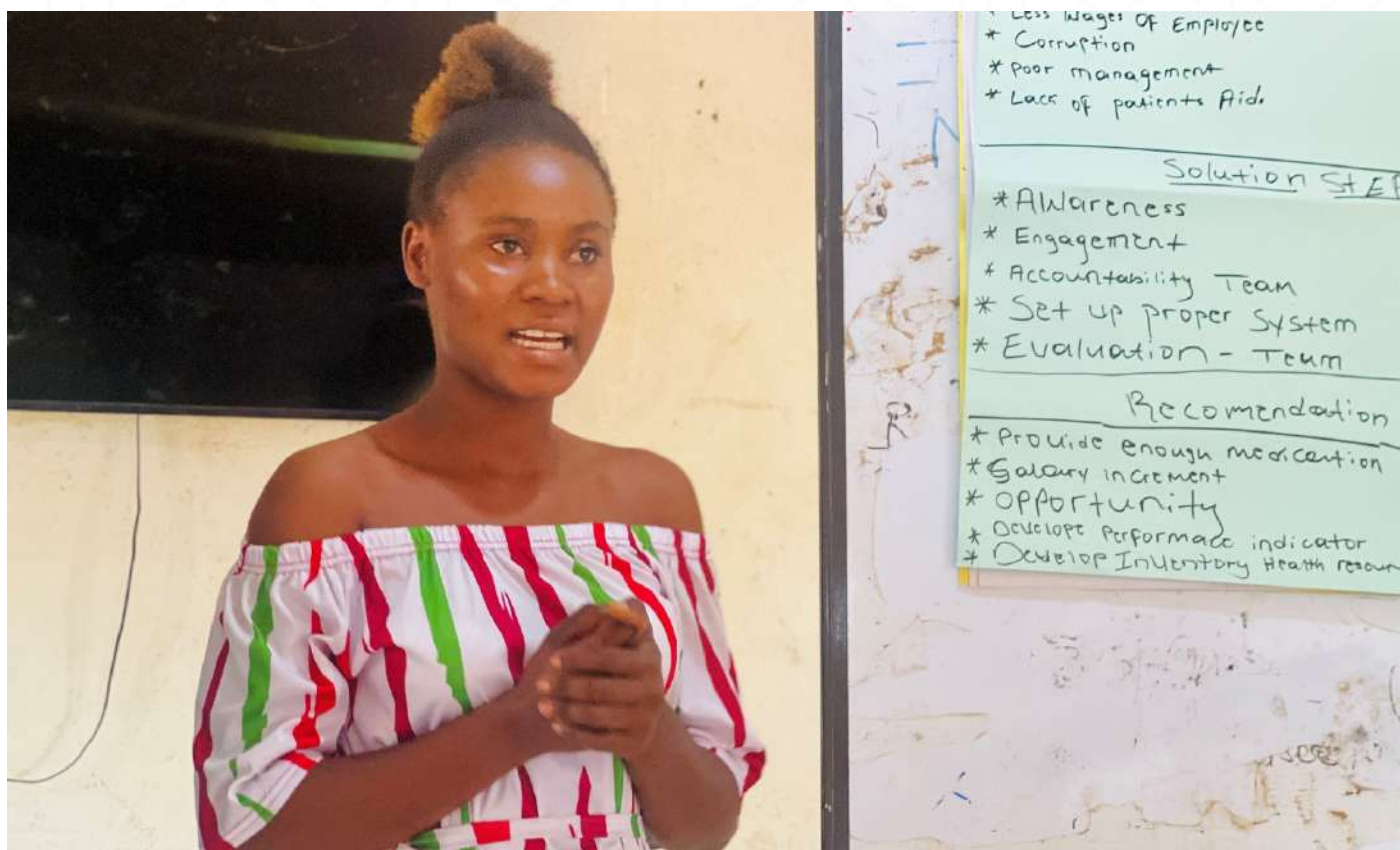 * Less Wages of Employee
* Corruption
* Poor management
* Lack of patients Aid.
Solution StEP
* AWareness
* Engagement
* Accountability Team
* Set up proper System
* Evaluation - Team
Recomendation
* Provide enough medication
* Salary increment
* OPPortunity
* Develope Performace indicator
* Develop Inventory Health resour